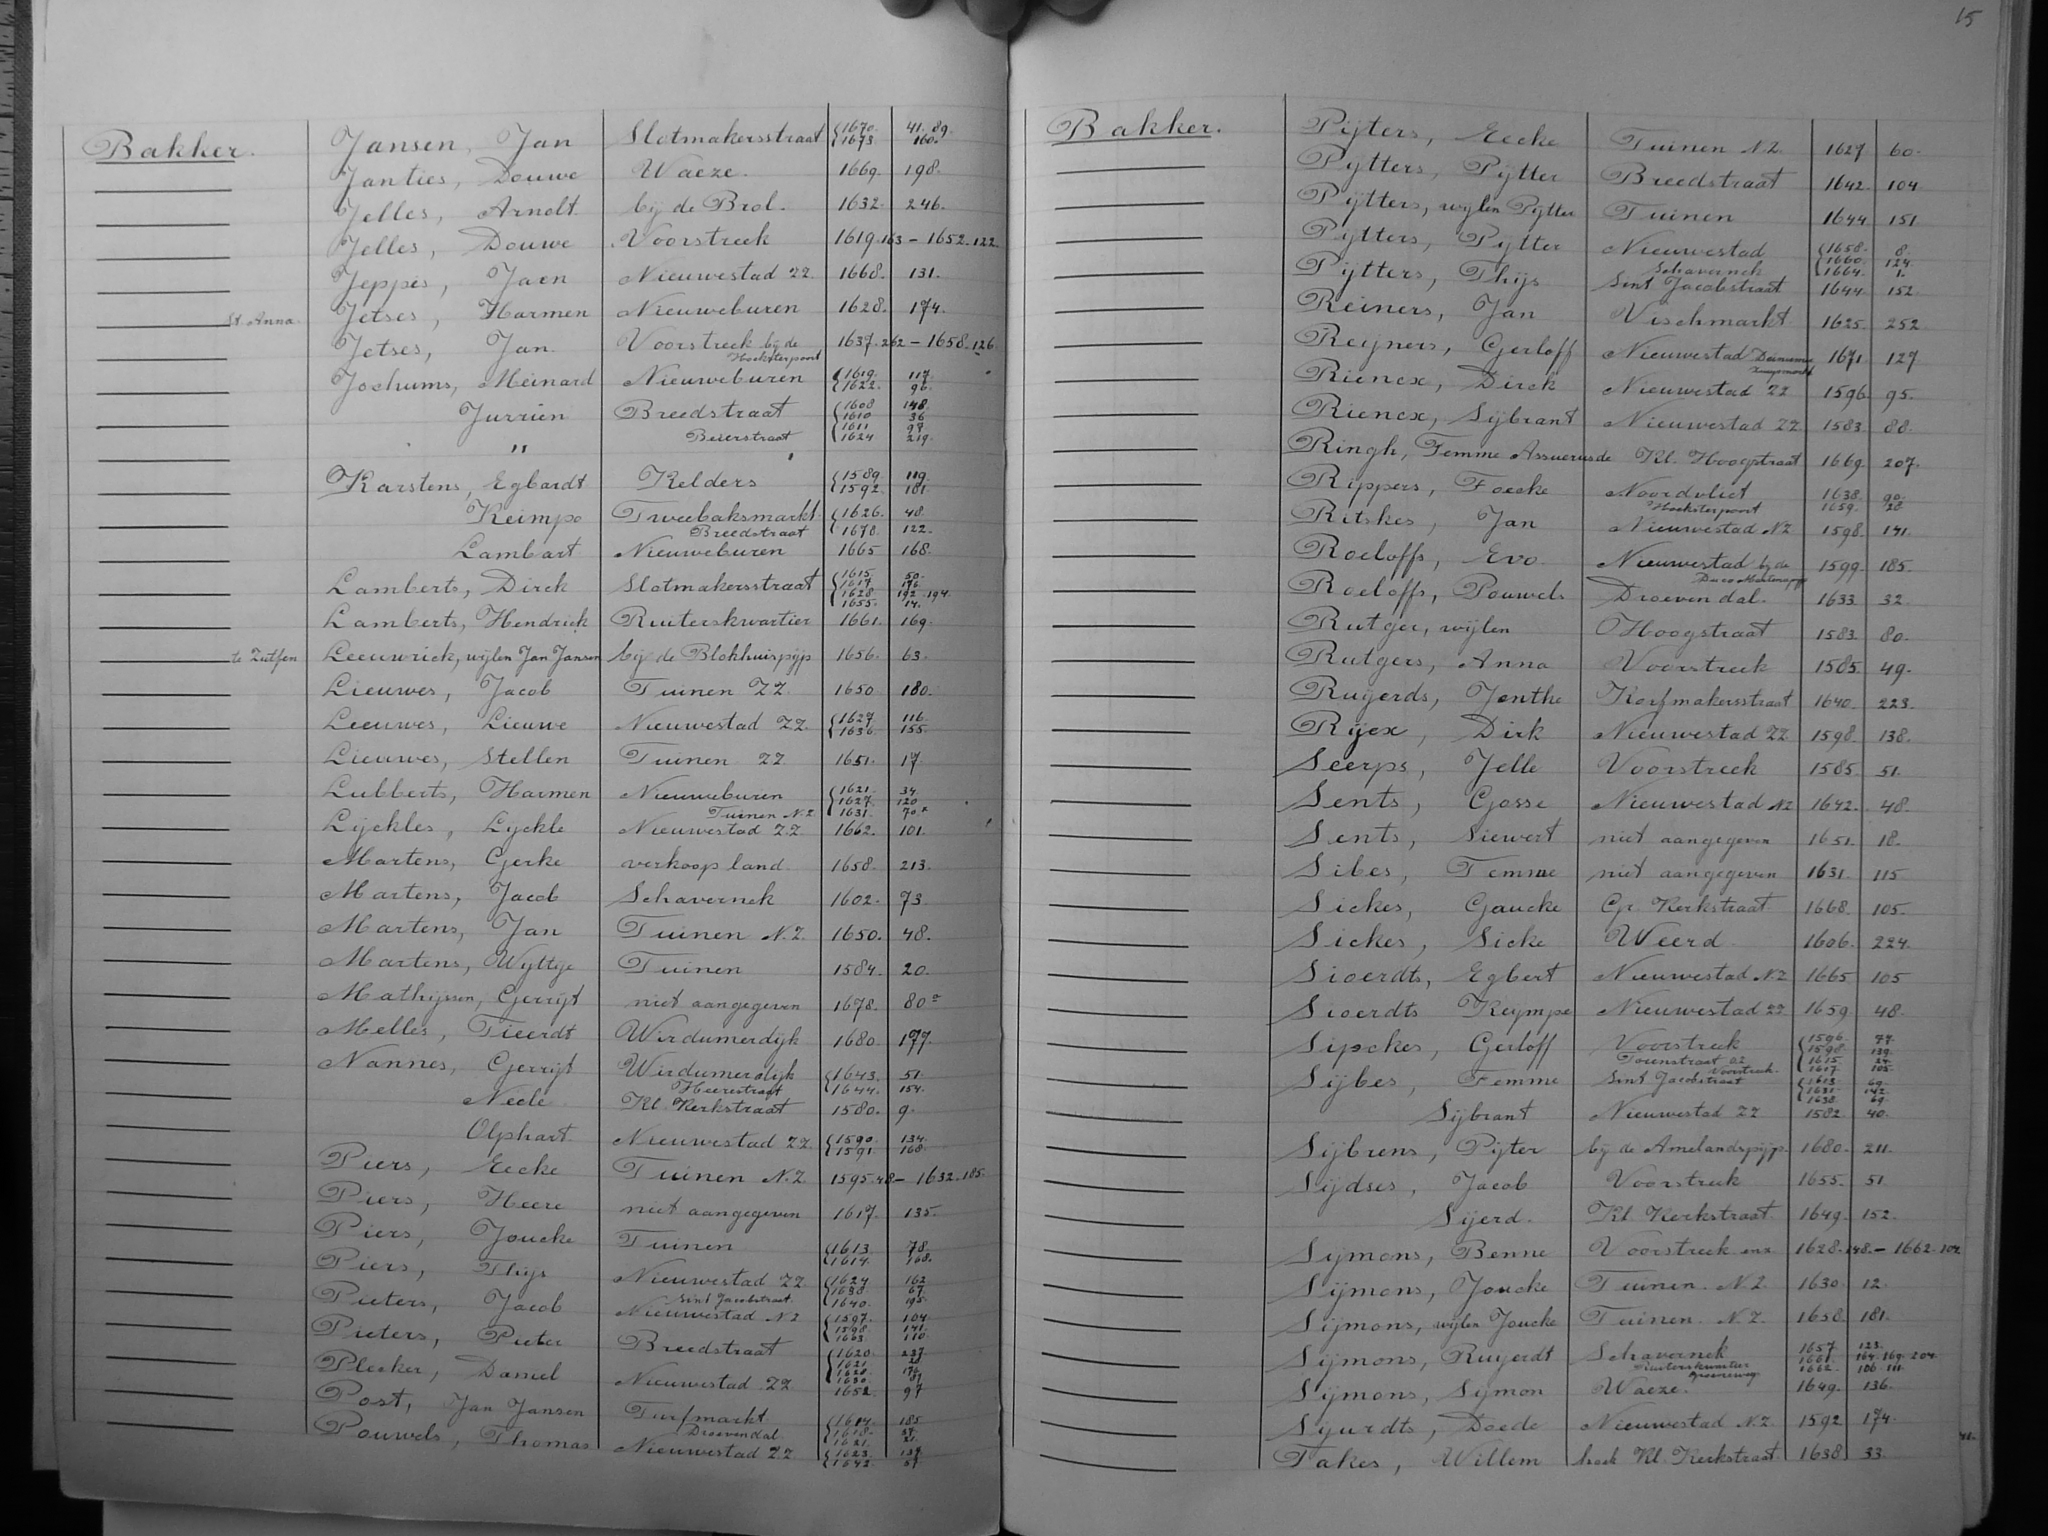 15
Bakker. Jansen, Jan Slotmakersstraat 1670. 41. 89.
1673 160.
Janties, Douwe Waeze. 1669. 198.
Jelles, Arnolt. bij de Brol. 1632. 246.
Jelles, Douwe Voorstreek 1619. 163 - 1652. 122
Jeppes, Jaen Nieuwestad ZZ. 1668. 131.
St. Anna. Jetses, Harmen Nieuweburen 1628. 174.
Jetses, Jan. Voorstreek bij de 1637. 262 - 1658. 126
Hoeksterpoort
Jochums, Meinard Nieuweburen 1619. 117.
1622. 96.
Jurrien Breedstraat 1608 148.
1610 36
" Beierstraat 1611 98.
1624 219.
Karstens, Egbardt Kelders 1589. 119.
1592. 181.
Keimpo Tweebaksmarkt 1626. 48.
Breedstraat 1678. 122.
Lambart Nieuweburen 1665 168.
Lamberts, Dirck Slotmakersstraat 1615. 50.
1617 176.
1628 192. 194.
1655. 14.
Lamberts, Hendrick Ruiterskwartier 1661. 169.
te Zutfen Leeuwrick, wijlen Jan Jansen bij de Blokhuispijp 1656. 63.
Lieuwes, Jacob Tuinen ZZ. 1650. 180.
Leeuwes, Lieuwe Nieuwestad ZZ. 1627. 116.
1636. 155.
Lieuwes, Stellen Tuinen ZZ 1651. 17.
Lubberts, Harmen Nieuweburen 1621. 34.
1627. 120
Tuinen N.Z. 1631.
Lyckles, Lyckle Nieuwestad ZZ. 1662. 101.
Martens, Gerke verkoop land. 1658. 213.
Martens, Jacob Schavernek 1602. 73.
Martens, Jan Tuinen N.Z. 1650. 48.
Martens, Wyttge Tuinen 1584. 20.
Mathijssen, Gerrijt niet aangegeven 1678. 80
Melles, Tieerdt Wirdumerdijk 1680. 177.
Nannes, Gerrijt Wirdumerdijk 1643. 51.
Heerestraat 1644. 154.
Neele Kl. Kerkstraat 1580. 9.
Olphart. Nieuwestad ZZ 1590. 134.
1591. 168.
Piers, Eecke Tuinen N.Z. 1595. 48 - 1632. 185.
Piers, Heere niet aangegeven 1617. 135.
Piers, Joucke Tuinen 1613. 78.
1614. 168.
Piers, Thijs Nieuwestad ZZ 1624. 162
1630. 67.
Sint Jacobstraat. 1640. 195.
Pieters, Jacob Nieuwestad NZ 1597. 104.
1598. 141.
1603. 110
Pieters, Pieter Breedstraat 1620. 237.
1621.
1630.
Plecker, Daniel Nieuwestad ZZ 1652. 97
Post, Jan Jansen Turfmarkt 1614. 185.
Droevendal. 1618.
1621. 21.
Pouwels, Thomas Nieuwestad ZZ 1623.
1642. 51.
Bakker. Pijters, Eecke Tuinen NZ. 1627 60.
Pijtters, Pijtter Breedstraat 1642. 104.
Pijtters, wijlen Pijtter Tuinen 1644. 151
Pijtters, Pijtter Nieuwestad 1658. 8.
1660. 124.
Schavernek 1664. 1.
Pijtters, Thijs Sint Jacobstraat 1644. 152.
Reiners, Jan Vischmarkt 1625. 252.
Reyners, Gerloff Nieuwestad 1671. 127
Riencx, Dirck Nieuwestad ZZ 1596 95.
Riencx, Sijbrant Nieuwestad ZZ. 1583. 88.
Ringh, Femme Assuerus de Kl. Hoogstraat 1669. 207.
Rippers, Foecke Noordvliet 1638. 90.
Hoeksterpoort 1659. 28.
Ritskes, Jan Nieuwestad NZ 1598. 141.
Roeloffs, Evo. Nieuwestad bij de 1599. 185.
Duco Martenapijp
Roeloffs, Pouwels Droevendal. 1633. 32.
Rutger, wijlen Hoogstraat 1583. 80.
Rutgers, Anna Voorstreek 1585. 49.
Ruijerds, Jenthe Korfmakersstraat 1640. 223.
Rijcx, Dirk Nieuwestad ZZ 1598. 138.
Seerps, Jelle Voorstreek 1585. 51.
Sents, Gosse Nieuwestad NZ 1642. 48.
Sents, Siewert niet aangegeven 1651. 18.
Sibes, Femme niet aangegeven 1631. 115
Sickes, Gaucke Gr. Kerkstraat 1668. 105.
Sickes, Sicke Weerd 1606. 224.
Sioerdts, Egbert Nieuwestad NZ 1665 105
Sioerdts Keympe Nieuwestad ZZ 1659 48.
Sipckes, Gerloff Voorstreek 1596. 77.
1598. 139.
1615.
Voorstreek. 1617 105.
Sijbes, Femme Sint Jacobstraat 1613. 69.
1631. 142.
1638. 69.
Sijbrant Nieuwestad ZZ 1582 40.
Sijbrens, Pijter bij de Amelandspijp. 1680. 211.
Sijdses, Jacob Voorstreek 1655. 51.
Sijerd. Kl. Kerkstraat. 1649. 152.
Sijmons, Benne Voorstreek enz 1628. 148. - 1662. 102
Sijmons, Joucke Tuinen. N.Z 1630. 12.
Sijmons, wijlen Joucke Tuinen. N.Z. 1658. 181.
Sijmons, Ruyerdt Schavernek 1657. 123.
1661. 164. 169. 204.
Ruiterskwartier 1662. 106. 111.
Groeneweg.
Sijmons, Symon Waeze. 1649. 136.
Sijurdts, Doede Nieuwestad N.Z. 1592 174.
Takes, Willem hoek Kl. Kerkstraat. 1638 33.